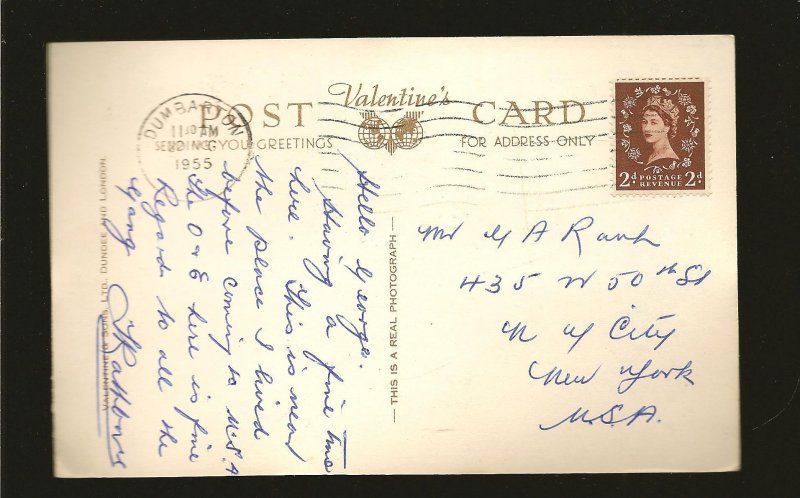 POST Valentine's CARD
SENDING YOU GREETINGS
FOR ADDRESS ONLY
DUMBARTON
11 30 AM
1955
2d POSTAGE REVENUE 2d
Hello George.
Having a fine time
here. This is near
the place I lived
before coming to U.S.A
The O & E here is fine
Regards to all the
Gang
Mr G A Rauh
435 W 50th St
N Y City
New York
U.S.A.
— THIS IS A REAL PHOTOGRAPH —
VALENTINE & SONS, LTD., DUNDEE AND LONDON